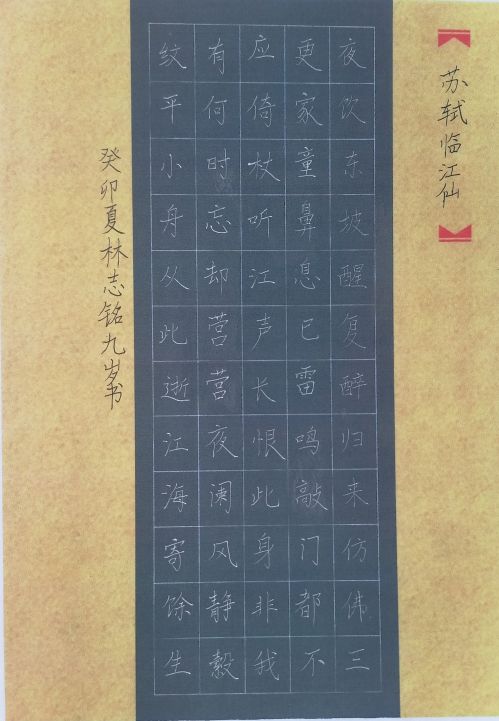 苏轼临江仙
夜饮东坡醒复醉归来仿佛三
更家童鼻息已雷鸣敲门都不
应倚杖听江声长恨此身非我
有何时忘却营营夜阑风静縠
纹平小舟从此逝江海寄馀生
癸卯夏林志铭九岁书